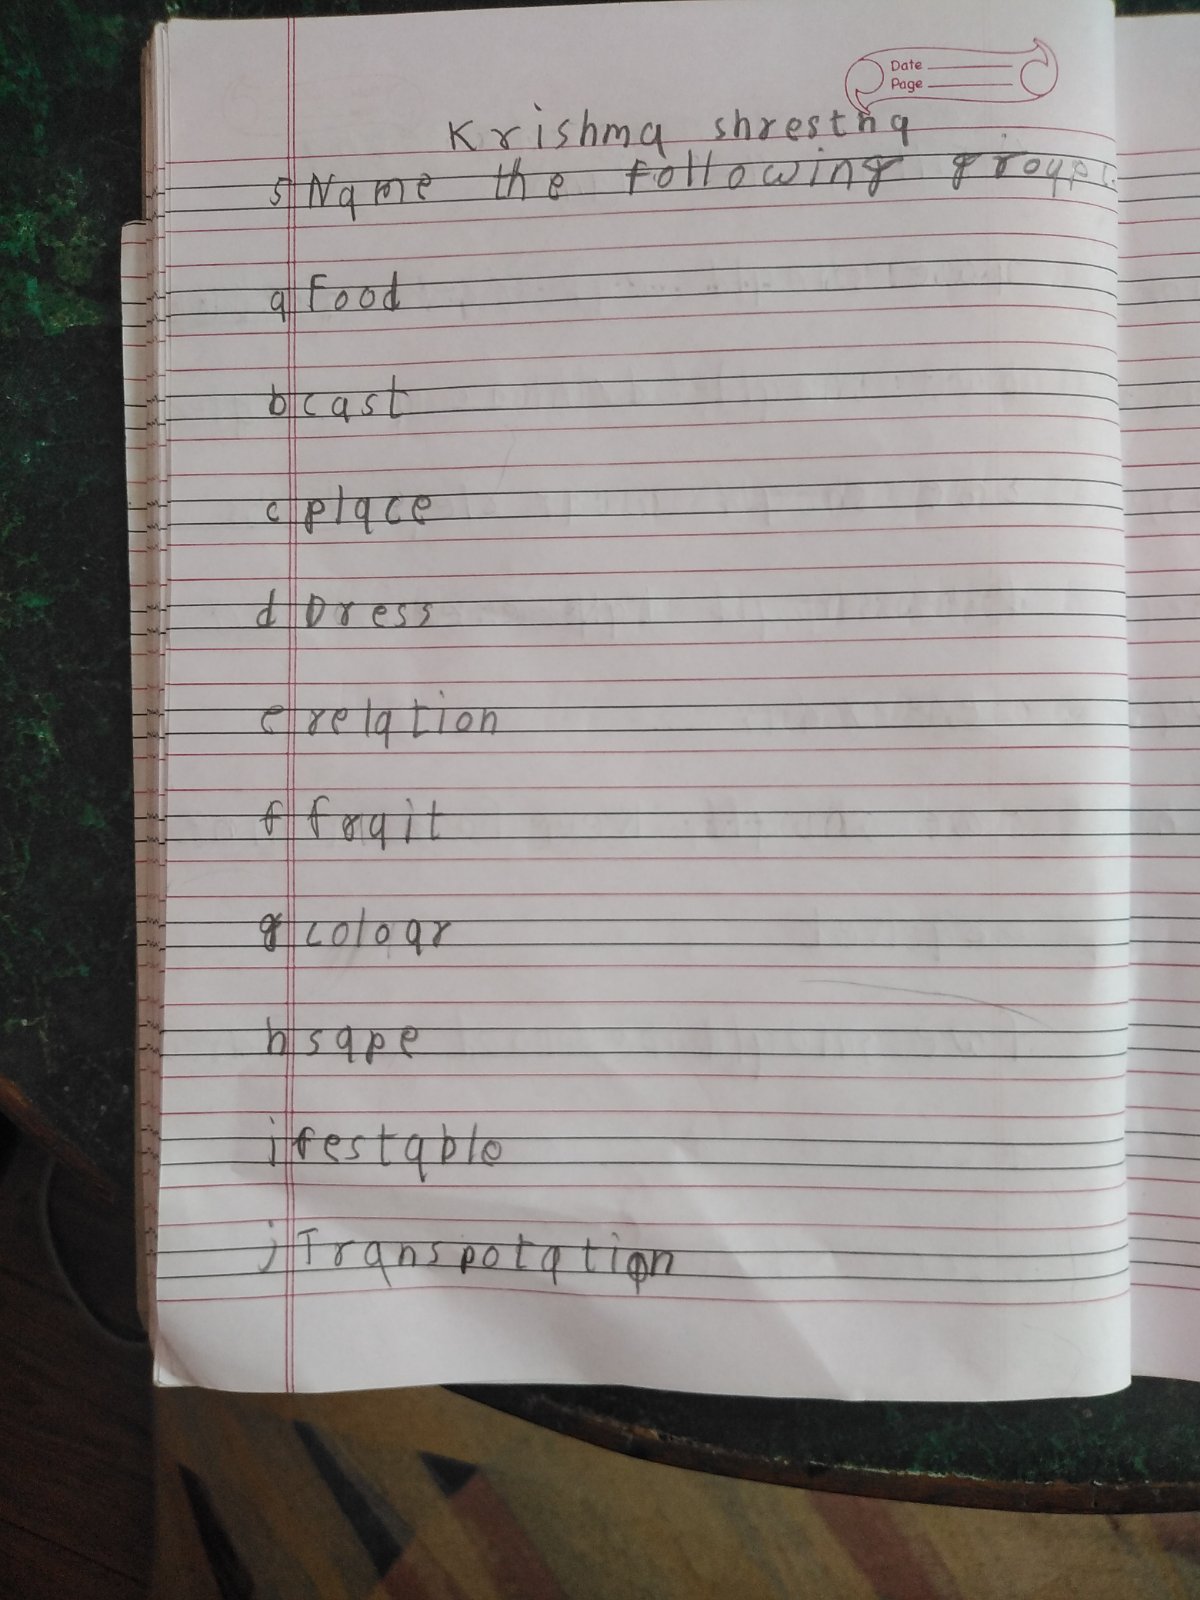 Date
Page
Krishma shrestha
5 Name the following groups.
a Food
b cast
c place
d Dress
e relation
f fruit
g colour
h sape
i festable
j Transpotation